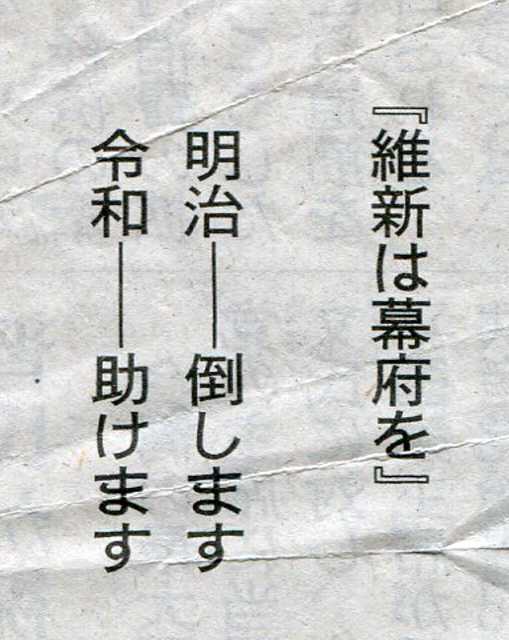 『維新は幕府を』
明治――倒します
令和――助けます